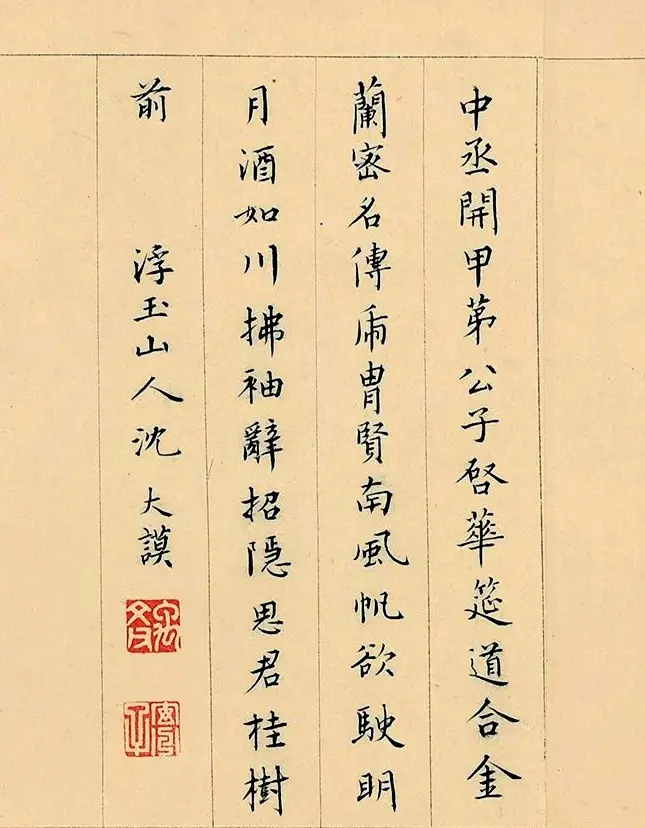 中丞開甲苐公子啓華筵道合金
蘭密名傳
胄賢南風帆欲駛明
月酒如川拂袖辭招隱思君桂樹
前
浮玉山人沈大謨